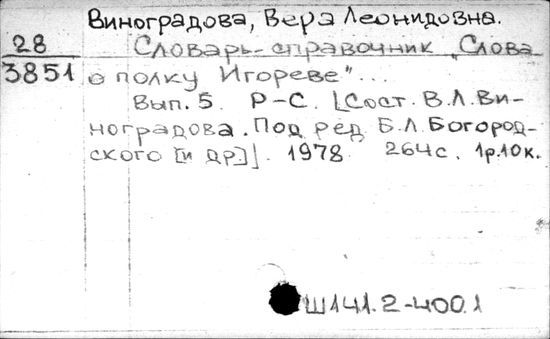 Виноградова, Вера Леонидовна.
28 Словарь-справочник „Слова
3851 о полку Игореве"...
Вып. 5. Р-С. [Сост. В.Л. Ви-
ноградова. Под ред Б.Л. Богород-
ского [и др]]. 1978 264с. 1р.10к.
Ш141.2-400.1